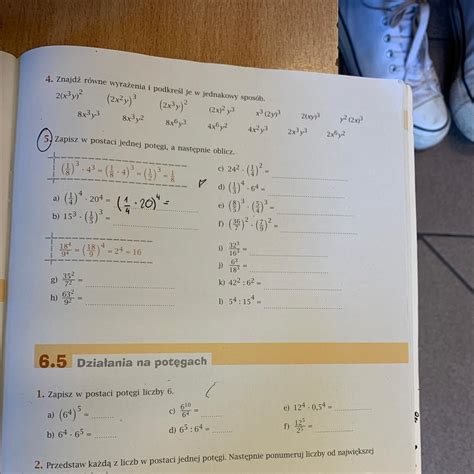 4. Znajdź równe wyrażenia i podkreśl je w jednakowy sposób.
2(x³y)² (2x²y)³ (2x³y)² (2x)² y³ x³ (2y)³ 2(xy)³ y² (2x)³
8x³y³ 8x³y² 8x⁶y³ 4x⁶y² 4x²y³ 2x³y³ 2x⁶y²
5. Zapisz w postaci jednej potęgi, a następnie oblicz.
(1/8)³ · 4³ = (1/8 · 4)³ = (1/2)³ = 1/8
a) (1/4)⁴ · 20⁴ = (1/4 · 20)⁴ =
b) 15³ · (1/5)³ =
c) 24² · (1/4)² =
d) (1/3)⁴ · 6⁴ =
e) (8/5)³ · (5/4)³ =
f) (36/7)² · (7/9)² =
18⁴/9⁴ = (18/9)⁴ = 2⁴ = 16
g) 35²/7² =
h) 63²/9² =
i) 32³/16³ =
j) 6³/18³ =
k) 42² : 6² =
l) 5⁴ : 15⁴ =
6.5 Działania na potęgach
1. Zapisz w postaci potęgi liczby 6.
a) (6⁴)⁵ =
b) 6⁴ · 6⁵ =
c) 6¹⁰/6⁴ =
d) 6⁵ : 6⁴ =
e) 12⁴ · 0,5⁴ =
f) 12⁵/2⁵ =
2. Przedstaw każdą z liczb w postaci jednej potęgi. Następnie ponumeruj liczby od największej